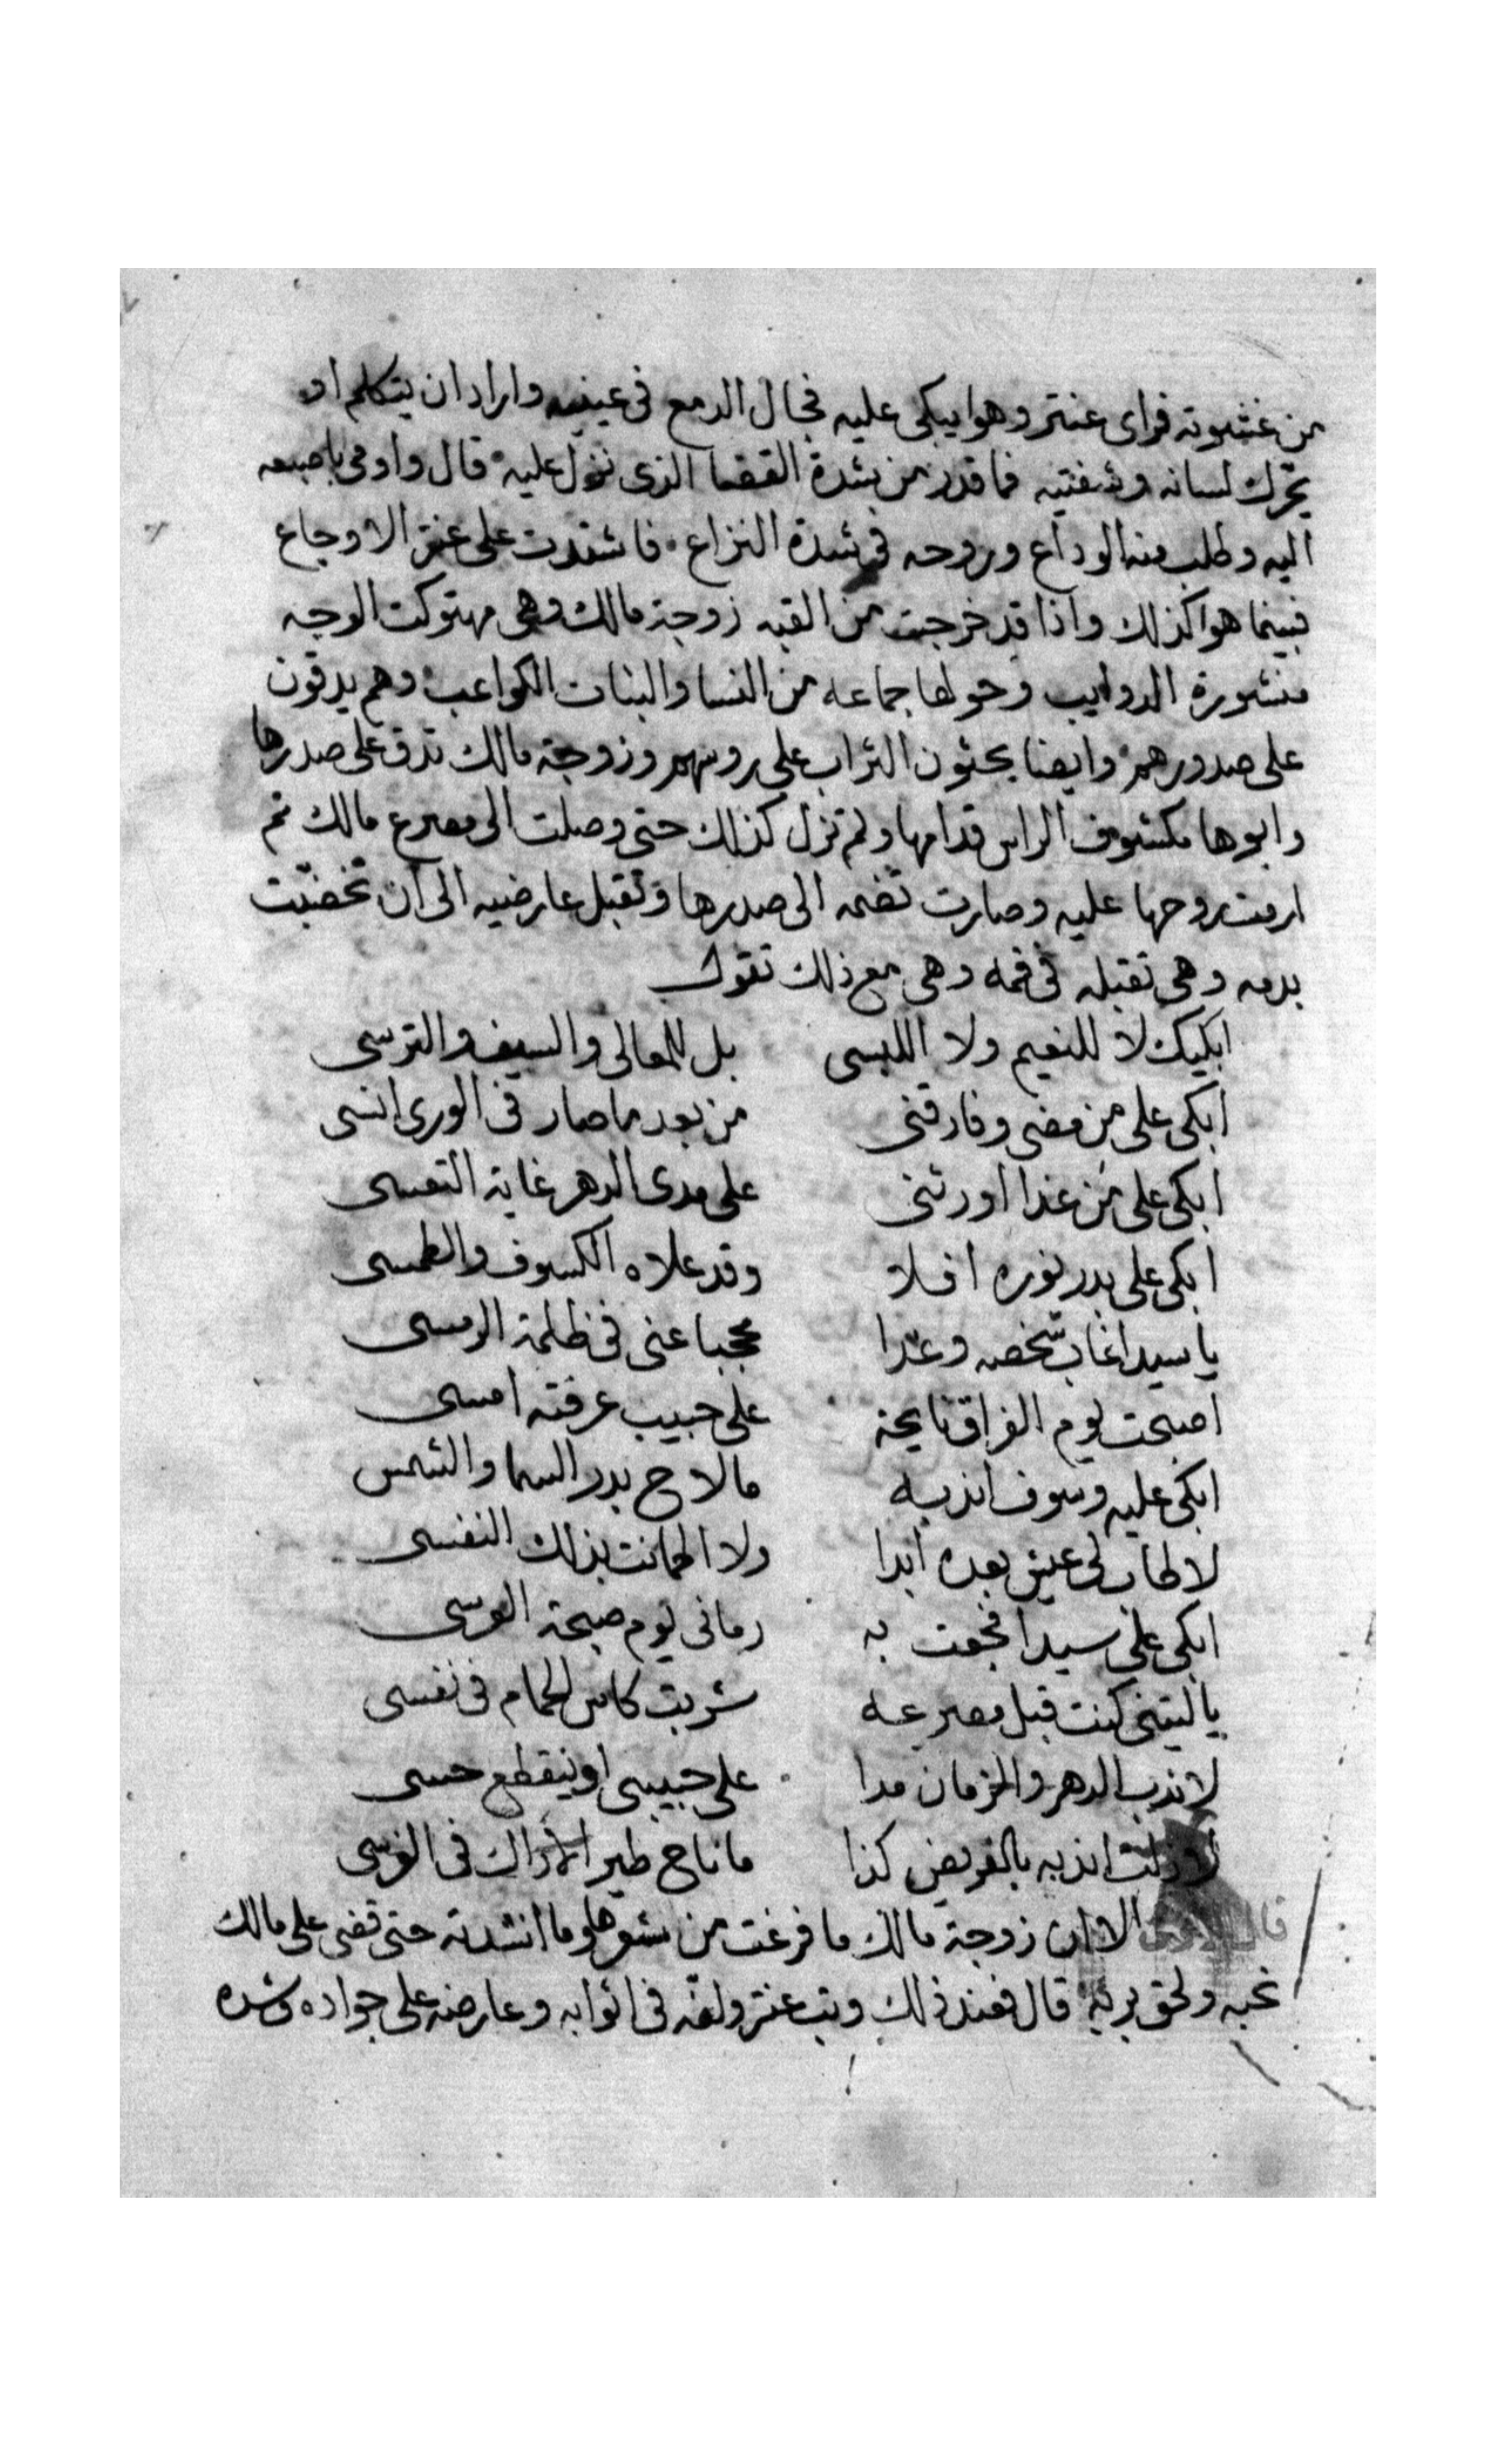 من غشوته فراى عنتر وهوا يبكى عليه فجال الدمع فى عينيه واراد ان يتكلم او
يحرك لسانه وشفتيه فما قدر من شدة القضا الذى نزل عليه قال واومى باصبعه
اليه وطلب منه الوداع وروحه فى شدة النزاع فاشتدت على عنتر الاوجاع
فبينما هوا كذلك واذا قد خرجت من القبه زوجة مالك وهى مهتوكت الوجه
منشورة الدوايب وحولها جماعه من النسا والبنات الكواعب وهم يدقون
على صدورهم وايضا يحثون التراب على روسهم وزوجة مالك تدق على صدرها
وابوها مكشوف الراس قدامها ولم تزل كذلك حتى وصلت الى مصرع مالك ثم
ارمت روحها عليه وصارت تضمه الى صدرها وتقبل عارضيه الى ان تخضبت
بدمه وهى تقبله فى فمه وهى مع ذلك تقول
ابكيك لا للنعيم ولا اللبسى بل للمعالى والسيف والترسى
ابكى على من مضى وفارقنى من بعد ما صار فى الورى انسى
ابكى على من غدا اورثنى على مدى الدهر غاية التعسى
ابكى على بدر نوره افلا وقد علاه الكسوف والطمسى
يا سيدا غاب شخصه وغدا محجبا عنى فى ظلمة الرمسى
اصبحت يوم الفراق نايحة على حبيب عرفته امسى
ابكى عليه وسوف اندبه ما لاح بدر السما والشمس
لا طاب لى عيش بعده ابدا ولا اطمانت بذلك النفسى
ابكى على سيدا فجعت به رمانى يوم صبحة العرسى
يا ليتنى كنت قبل مصرعه شربت كاس الحمام فى نفسى
لاندب الدهر والزمان مدا على حبيبى او ينقطع حسى
لا زلت اندبه بالقريض كذا ما ناح طير الاراك فى الغرسى
قال الاان زوجة مالك ما فرغت من شعرها وما انشدته حتى قضى على مالك
نحبه ولحق بربه قال فعند ذلك وثب عنتر ولفه فى اثوابه وعارضه على جواده وشده